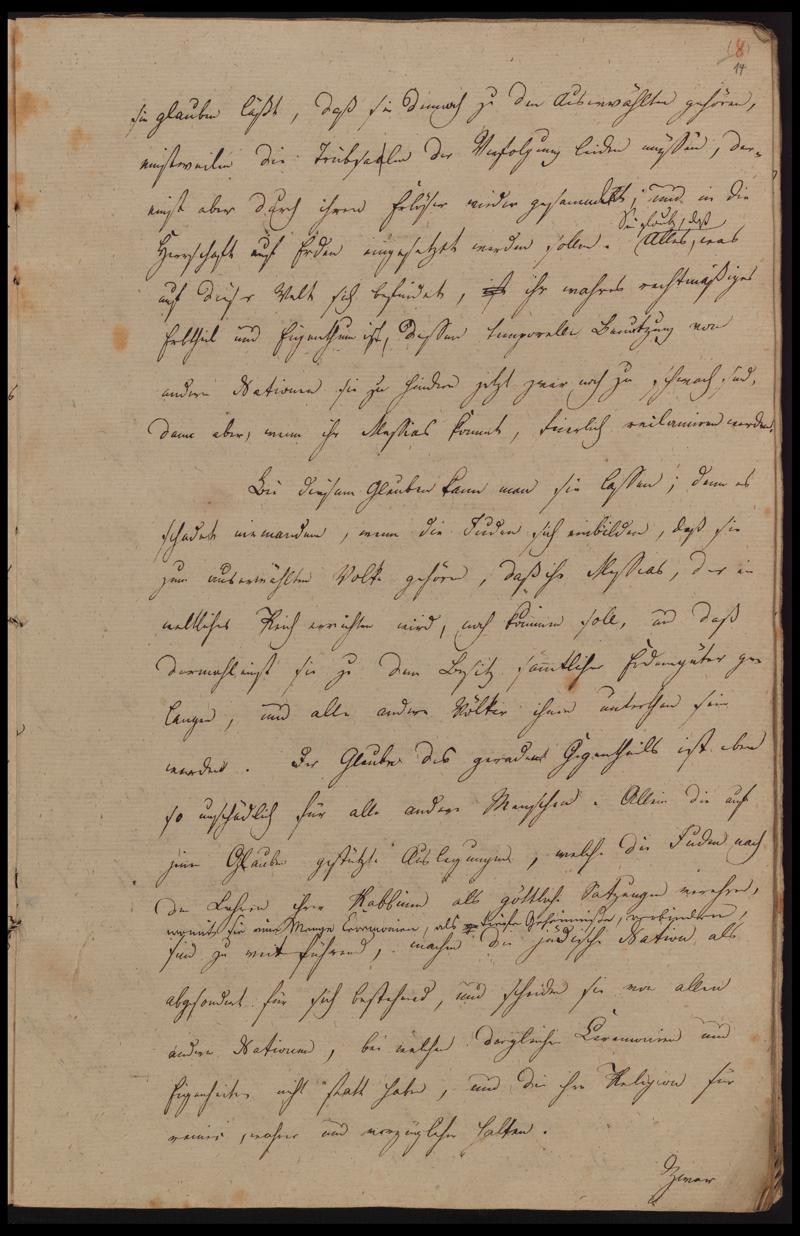 (8)
14
sie glauben läßt, daß sie dennoch zu den Auserwählten gehören,
einstweilen die Trübsaalen der Verfolgung leiden müssen, der-
einst aber durch ihren Erlöser wieder gesammelt, und in die
Herrschaft auf Erden eingesetzt werden sollen. Sie glauben, daß Alles, was
auf dieser Welt sich befindet, ihr wahres rechtmäßiges
Erbtheil und Eigenthum ist, dessen temporelle Benutzung von
andern Nationen sie zu hindern jetzt zwar noch zu schwach sind,
dann aber, wenn ihr Messias kommt, feierlich reclamiren werden.
Bei diesem Glauben kann man sie lassen; denn es
schadet niemandem, wenn die Juden sich einbilden, daß sie
zum auserwählten Volke gehören, daß ihr Messias, der ein
weltliches Reich errichten wird, noch kommen soll, und daß
dermahleinst sie zu dem Besitz sämtlicher Erdengüter ge-
langen, und alle andere Völker ihnen unterthan sein
werden. Der Glaube des geraden Gegentheils ist eben
so unschädlich für alle andere Menschen. Allein die auf
jenen Glauben gestützte Auslegungen, welche die Juden nach
den Lehren ihrer Rabbinen als göttliche Satzungen verehren,
womit sie eine Menge Ceremonien, als tiefe Geheimnisse, verbinden,
sind zu weit führend, machen die jüdische Nation als
abgesondert für sich bestehend, und scheiden sie von allen
andern Nationen, bei welchen dergleichen Ceremonien und
Eigenheiten nicht statt haben, und die ihre Religion für
reiner, wahrer und vorzüglicher halten.
Zwar